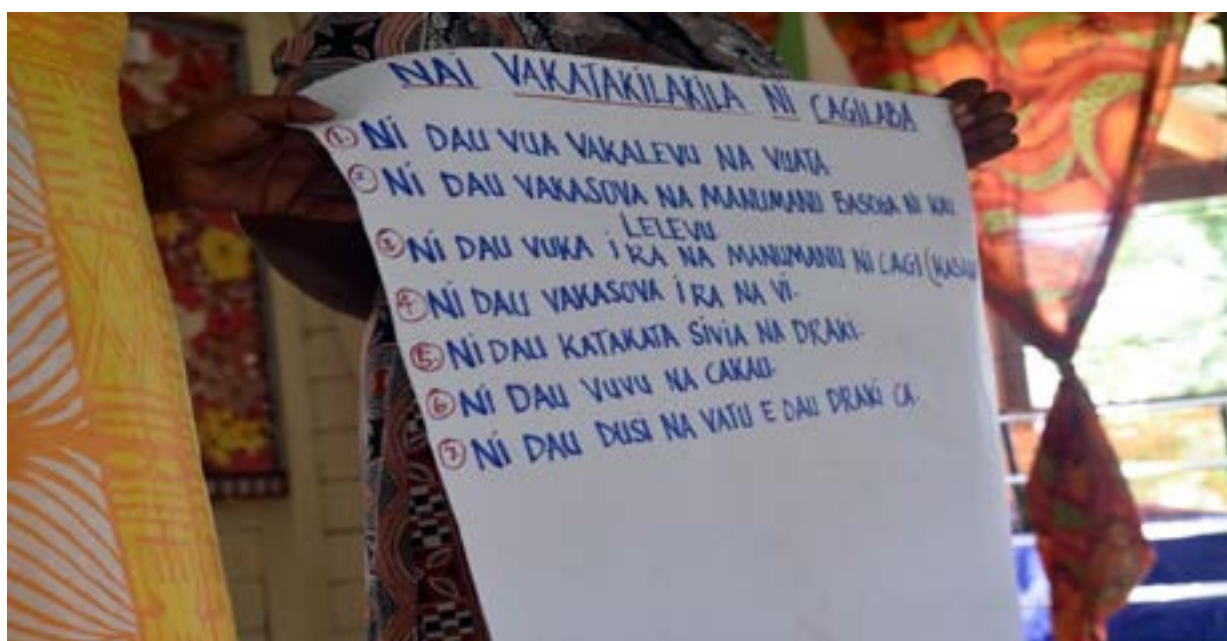 NAI VAKATAKILAKILA NI CAGILABA
1. NI DAU VUA VAKALEVU NA VUATA
2. NI DAU VAKASOVA NA MANUMANU ENA NI KAU
LELEVU
3. NI DAU VUKA I RA NA MANUMANU NI CAGI (KASA
4. NI DAU VAKASOVA I RA NA VI.
5. NI DAU KATAKATA SIVIA NA DRAKI.
6. NI DAU VUVU NA CAKAU.
7. NI DAU DUSI NA VATU E DAU DRAKI CA.